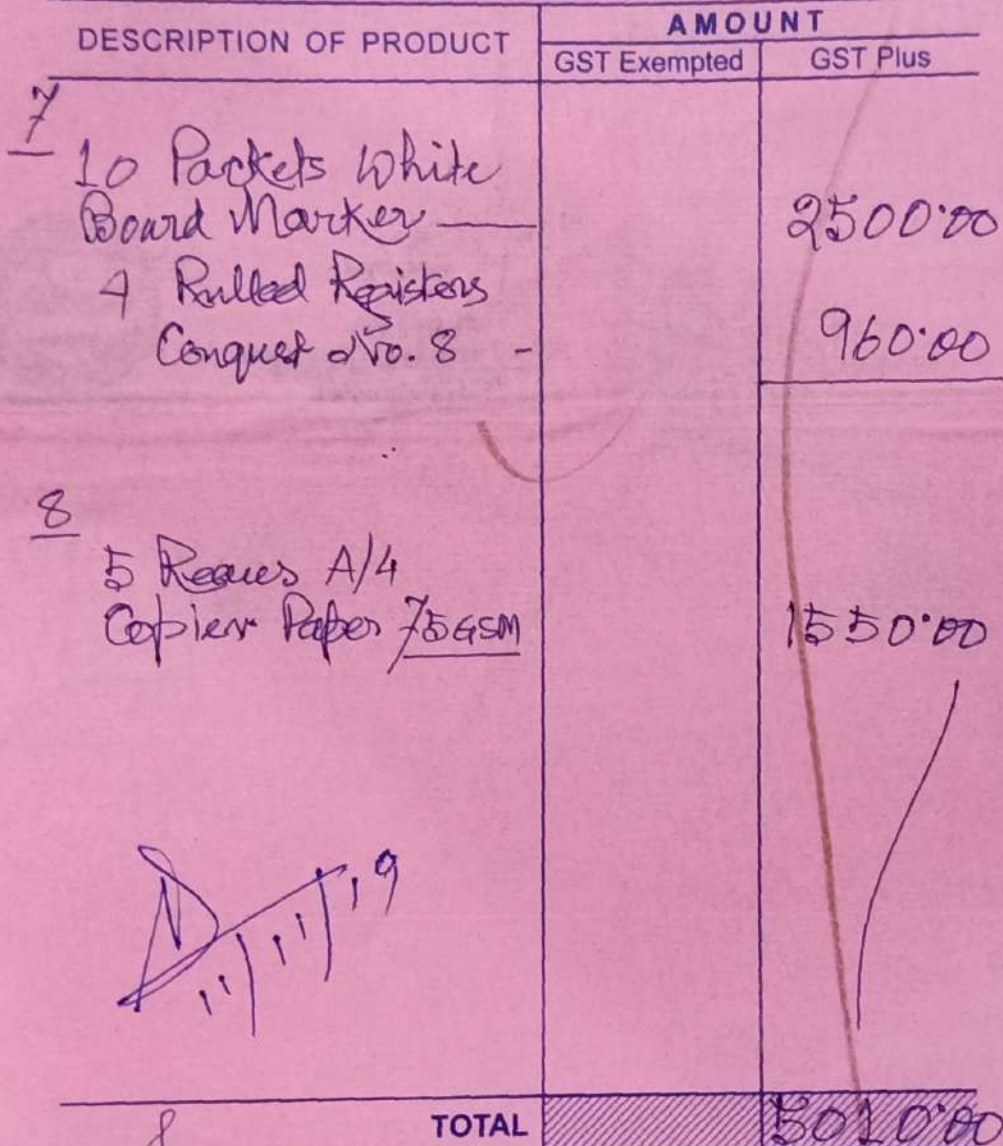 DESCRIPTION OF PRODUCT AMOUNT
GST Exempted GST Plus
7
10 Packets White
Board Marker — 2500.00
4 Rulled Registers
Conquest No. 8 - 960.00
8
5 Reams A/4
Copier Paper 75GSM 1550.00
11/11/19
TOTAL 5010.00